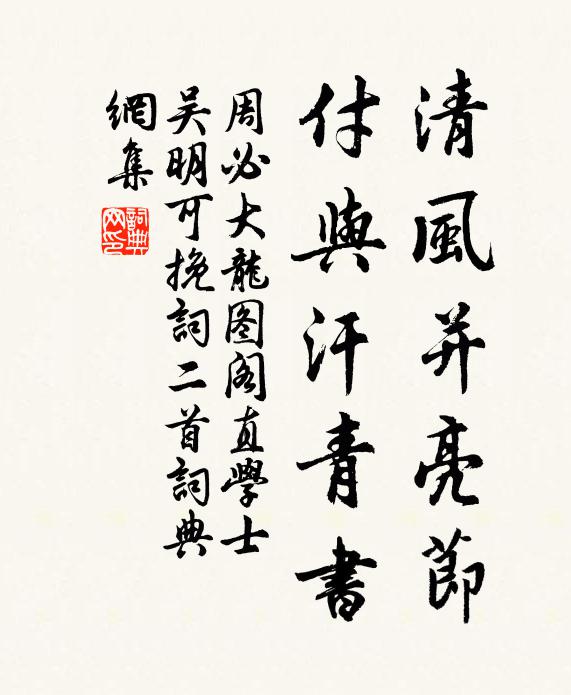 清風并亮節
付與汗青書
周必大龍图阁直學士
吴明可挽詞二首詞典
網集
詞典
网印